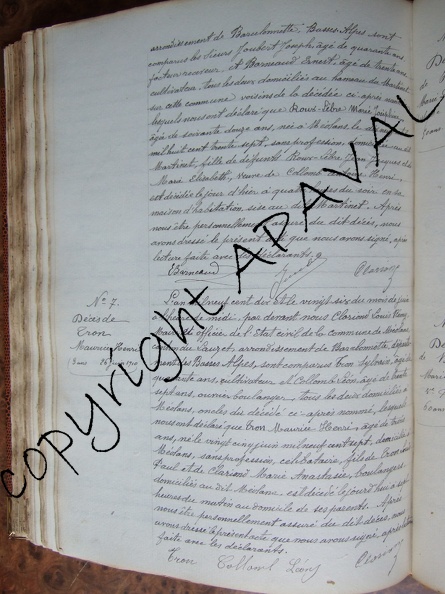 arrondissement de Barcelonnette, Basses-Alpes sont
comparus les sieurs Joubert Joseph âgé de quarante ans
facteur receveur et Borneaud Ernest âgé de trente ans
cultivateur, tous les deux domiciliés au hameau du Martinet
sur cette commune voisins de la décédée ci-après nommée
lesquels nous ont déclaré que Roux-Lèbre Marie
âgée de soixante douze ans, née à Méolans le
mil huit cent trente sept, sans profession,
Martinet, fille de défunts Roux-Lèbre Jean
Marie Elisabeth, veuve de Collomb
est décédée le jour d'hier à quatre heures du soir en sa
maison d'habitation sise au dit Martinet. Après
nous être personnellement assuré du dit décès, nous
avons dressé le présent acte que nous avons signé, après
lecture faite avec les déclarants.
Borneaud
N° 7.
Décès de
Tron
Maurice Henri
3 ans 26 juin 1910
L'an mil neuf cent dix et le vingt six du mois de juin
heure de midi, par devant nous Clariond Louis
Maire et officier de l'Etat civil de la commune de Méolans
canton du Lauzet, arrondissement de Barcelonnette, département
des Basses Alpes, sont comparus Tron Sylvain âgé de
quarante ans, cultivateur et Collomb Léon âgé de trente
sept ans, ouvrier boulanger, tous les deux domiciliés à
Méolans, oncles du décédé ci-après nommé, lesquels
nous ont déclaré que Tron Maurice Henri, âgé de trois
ans, né le vingt cinq juin mil neuf cent sept, domicilié à
Méolans, sans profession, célibataire, fils de Tron
Paul et de Clariond Marie Anastasie, boulangers
domiciliés au dit Méolans, est décédé le jour d'hui à sept
heures du matin au domicile de ses parents. Après
nous être personnellement assuré du dit décès, nous
avons dressé le présent acte que nous avons signé, après lecture
faite avec les déclarants.
Tron Collomb Léon
copyright APAVAL